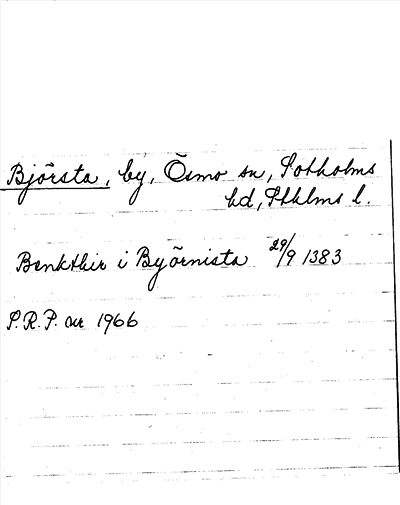 Björsta, by, Ösmo sn, Sotholms
hd, Sthlms l.
Benkthir i Byörnista 29/9 1383
S.R.P. nr 1966